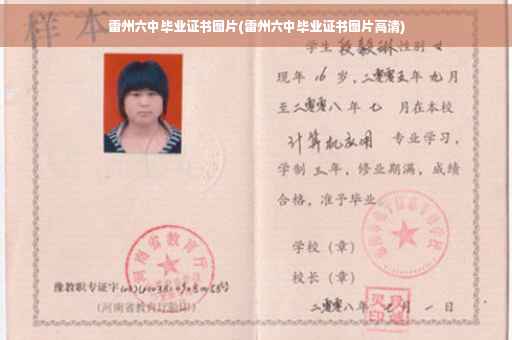 雷州六中毕业证书图片(雷州六中毕业证书图片高清)
样本
学生 段毅琳 性别 女
现年 16 岁,二零零五年 九 月
至二零零八年 七 月在本校
计算机应用 专业学习,
学制 三 年,修业期满,成绩
合格,准予毕业
学校(章)
校长(章)
二零零八年 七 月 一 日
河南省教育厅
豫教职专证字
(河南省教育厅验印)